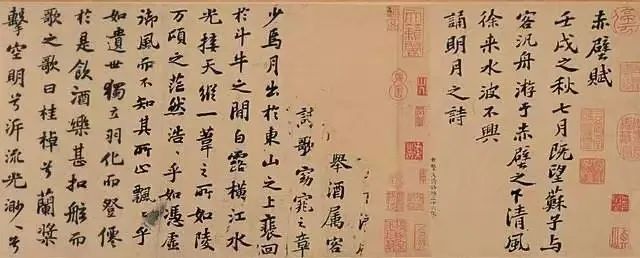 赤壁賦
壬戌之秋七月既望蘇子与
客汎舟游于赤壁之下清風
徐来水波不興
舉酒属客
誦明月之詩
歌窈窕之章
少焉月出於東山之上裴回
於斗牛之間白露橫江水
光接天縱一葦之所如陵
万頃之茫然浩〻乎如馮虛
御風而不知其所止飄〻乎
如遺世獨立羽化而登僊
於是飲酒樂甚扣舷而
歌之歌曰桂棹兮蘭槳
擊空明兮泝流光渺〻兮